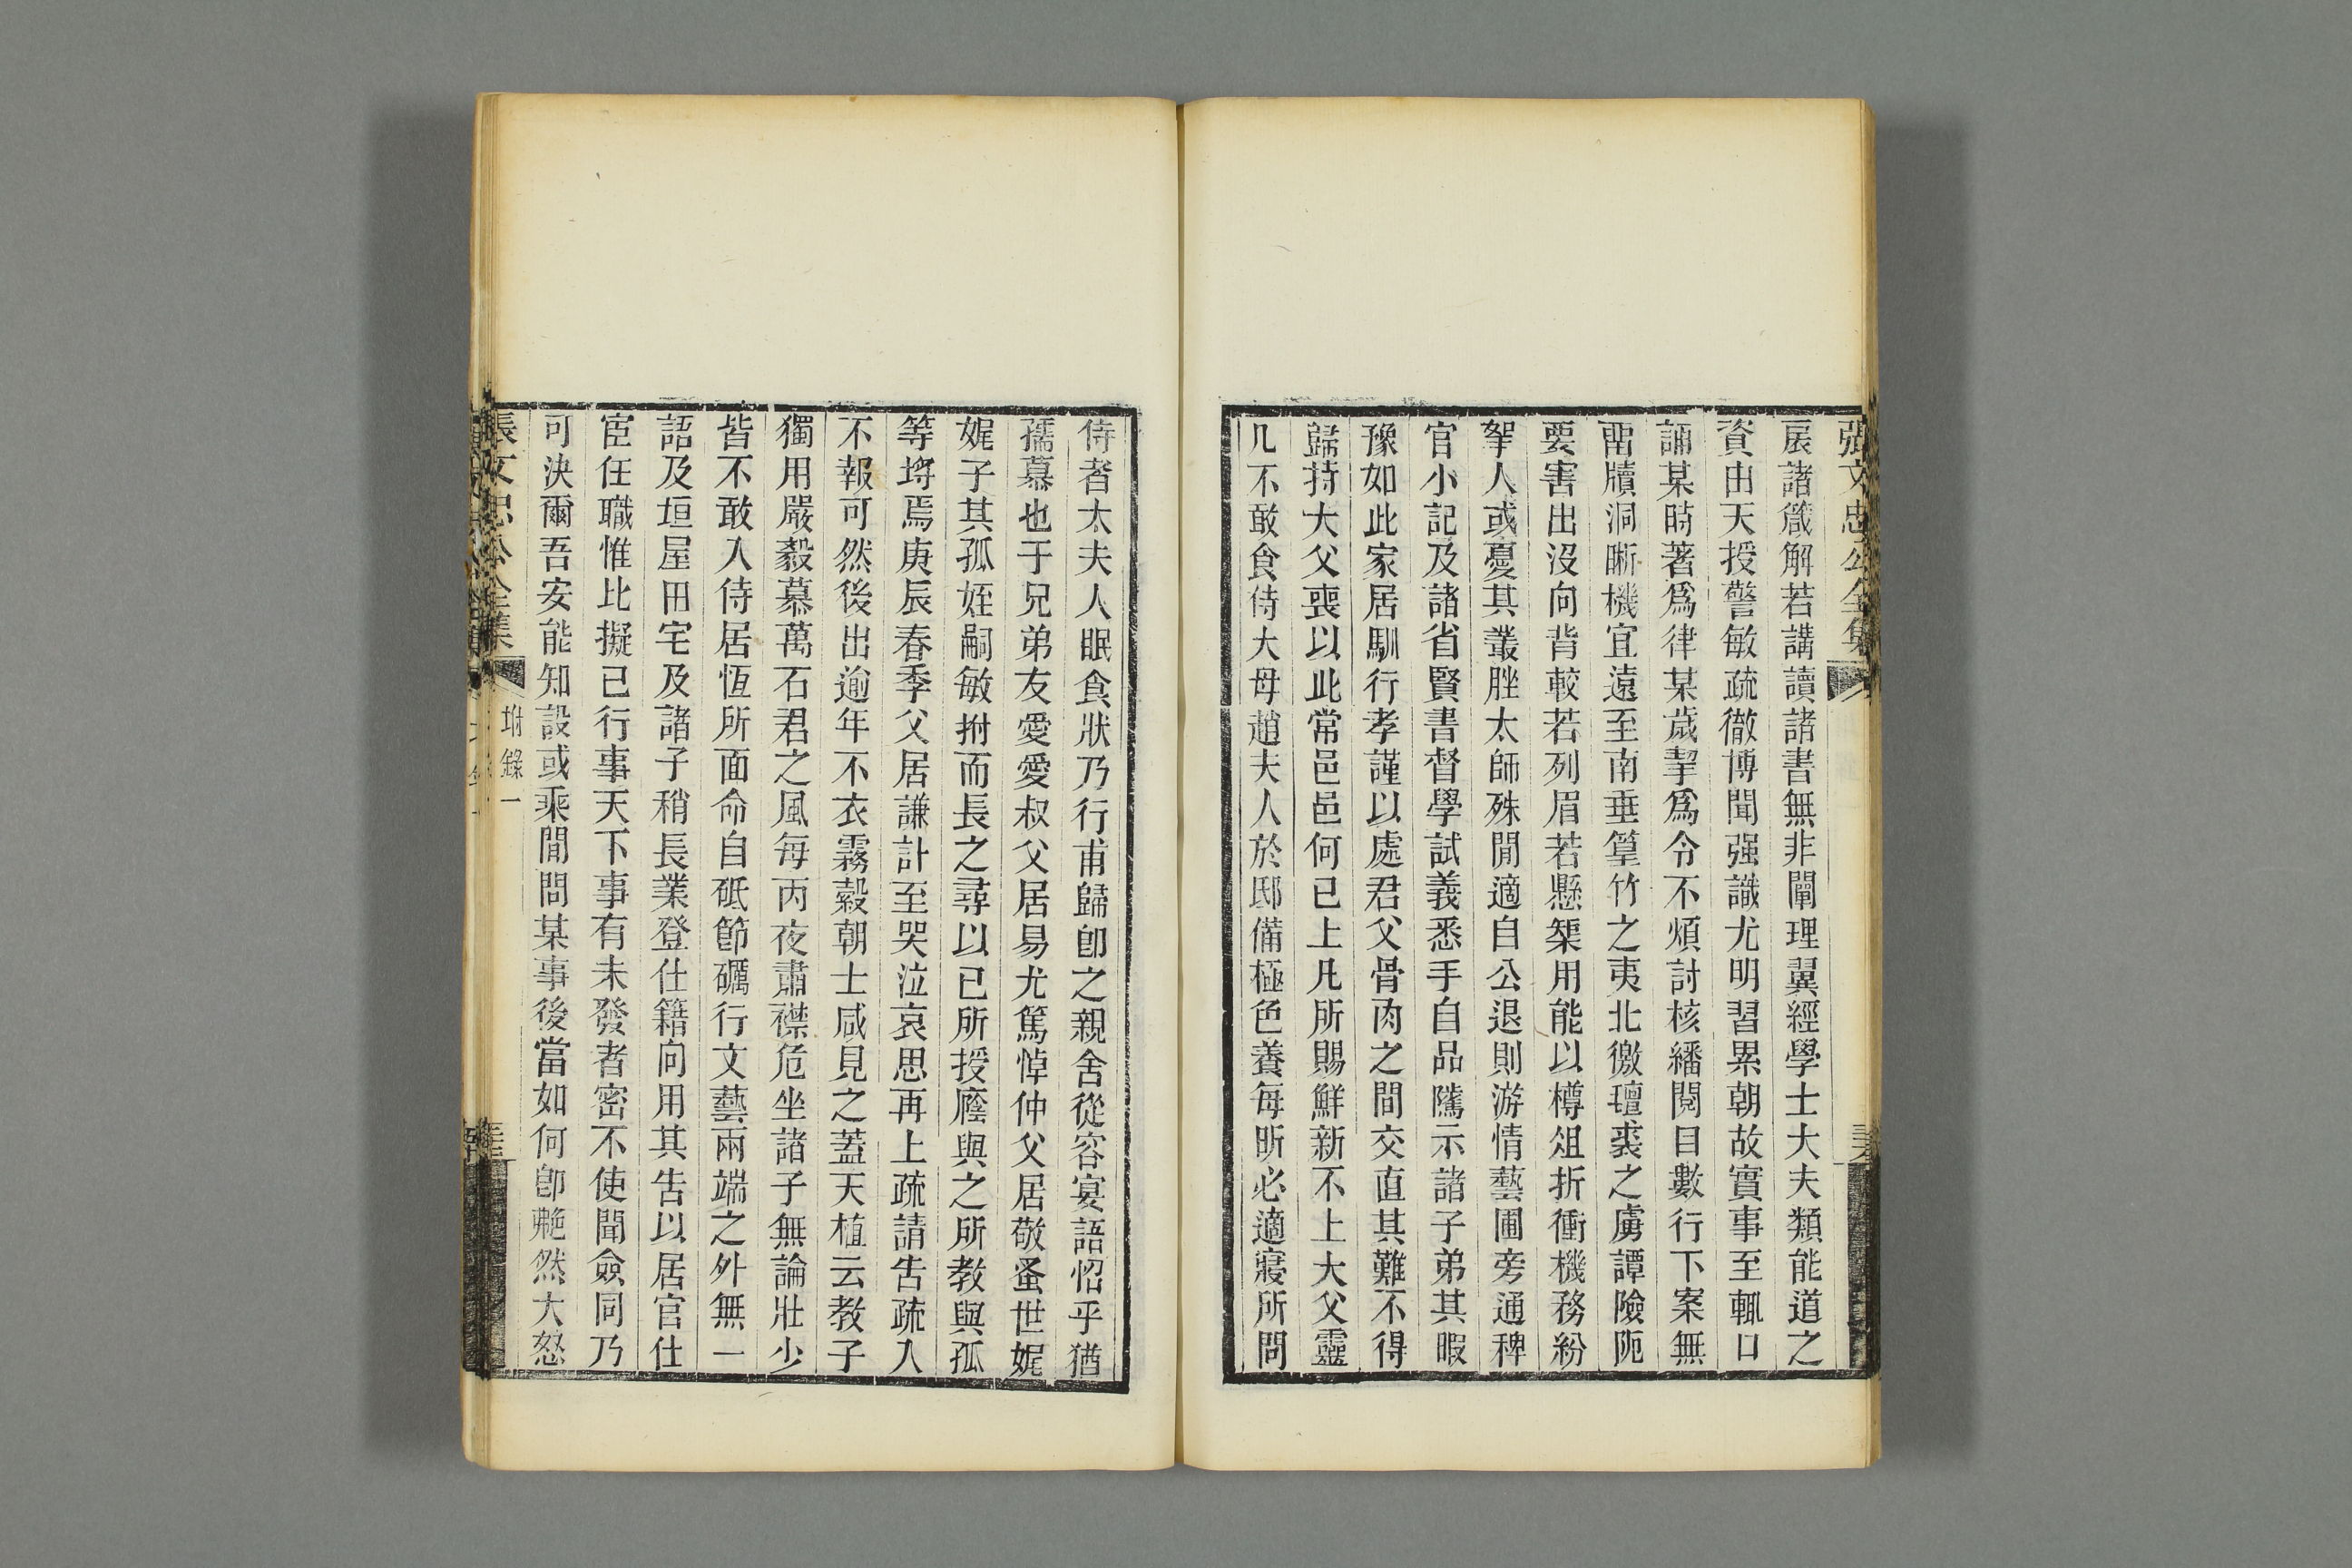 張文忠公全集
扆諸箴解若講讀諸書無非闡理翼經學士大夫類能道之
資由天授警敏疏徹博聞强識尤明習累朝故實事至輒口
誦某時著爲律某歲挈爲令不煩討核繙閱目數行下案無
畱牘洞晰機宜遠至南垂篁竹之夷北徼氊裘之虜譚險阨
要害出沒向背較若列眉若懸榘用能以樽俎折衝機務紛
挐人或憂其叢脞太師殊閒適自公退則游情藝圃旁通稗
官小記及諸省賢書督學試義悉手自品隲示諸子弟其暇
豫如此家居馴行孝謹以處君父骨肉之間交直其難不得
歸持大父喪以此常邑邑何已上凡所賜鮮新不上大父靈
几不敢食侍大母趙夫人於邸備極色養每昕必適寢所問
侍者太夫人眠食狀乃行甫歸卽之親舍從容宴語怊乎猶
孺慕也于兄弟友愛愛叔父居易尤篤悼仲父居敬蚤世娓
娓子其孤姪嗣敏拊而長之尋以已所授廕與之所教與孤
等埒焉庚辰春季父居謙訃至哭泣哀思再上疏請告疏入
不報可然後出逾年不衣霧縠朝士咸見之蓋天植云教子
獨用嚴毅慕萬石君之風每丙夜肅襟危坐諸子無論壯少
皆不敢入侍居恆所面命自砥節礪行文藝兩端之外無一
語及垣屋田宅及諸子稍長業登仕籍向用其告以居官仕
宦任職惟比擬已行事天下事有未發者密不使聞僉同乃
可決爾吾安能知設或乘閒問某事後當如何卽艴然大怒
張文忠公全集
坿錄一